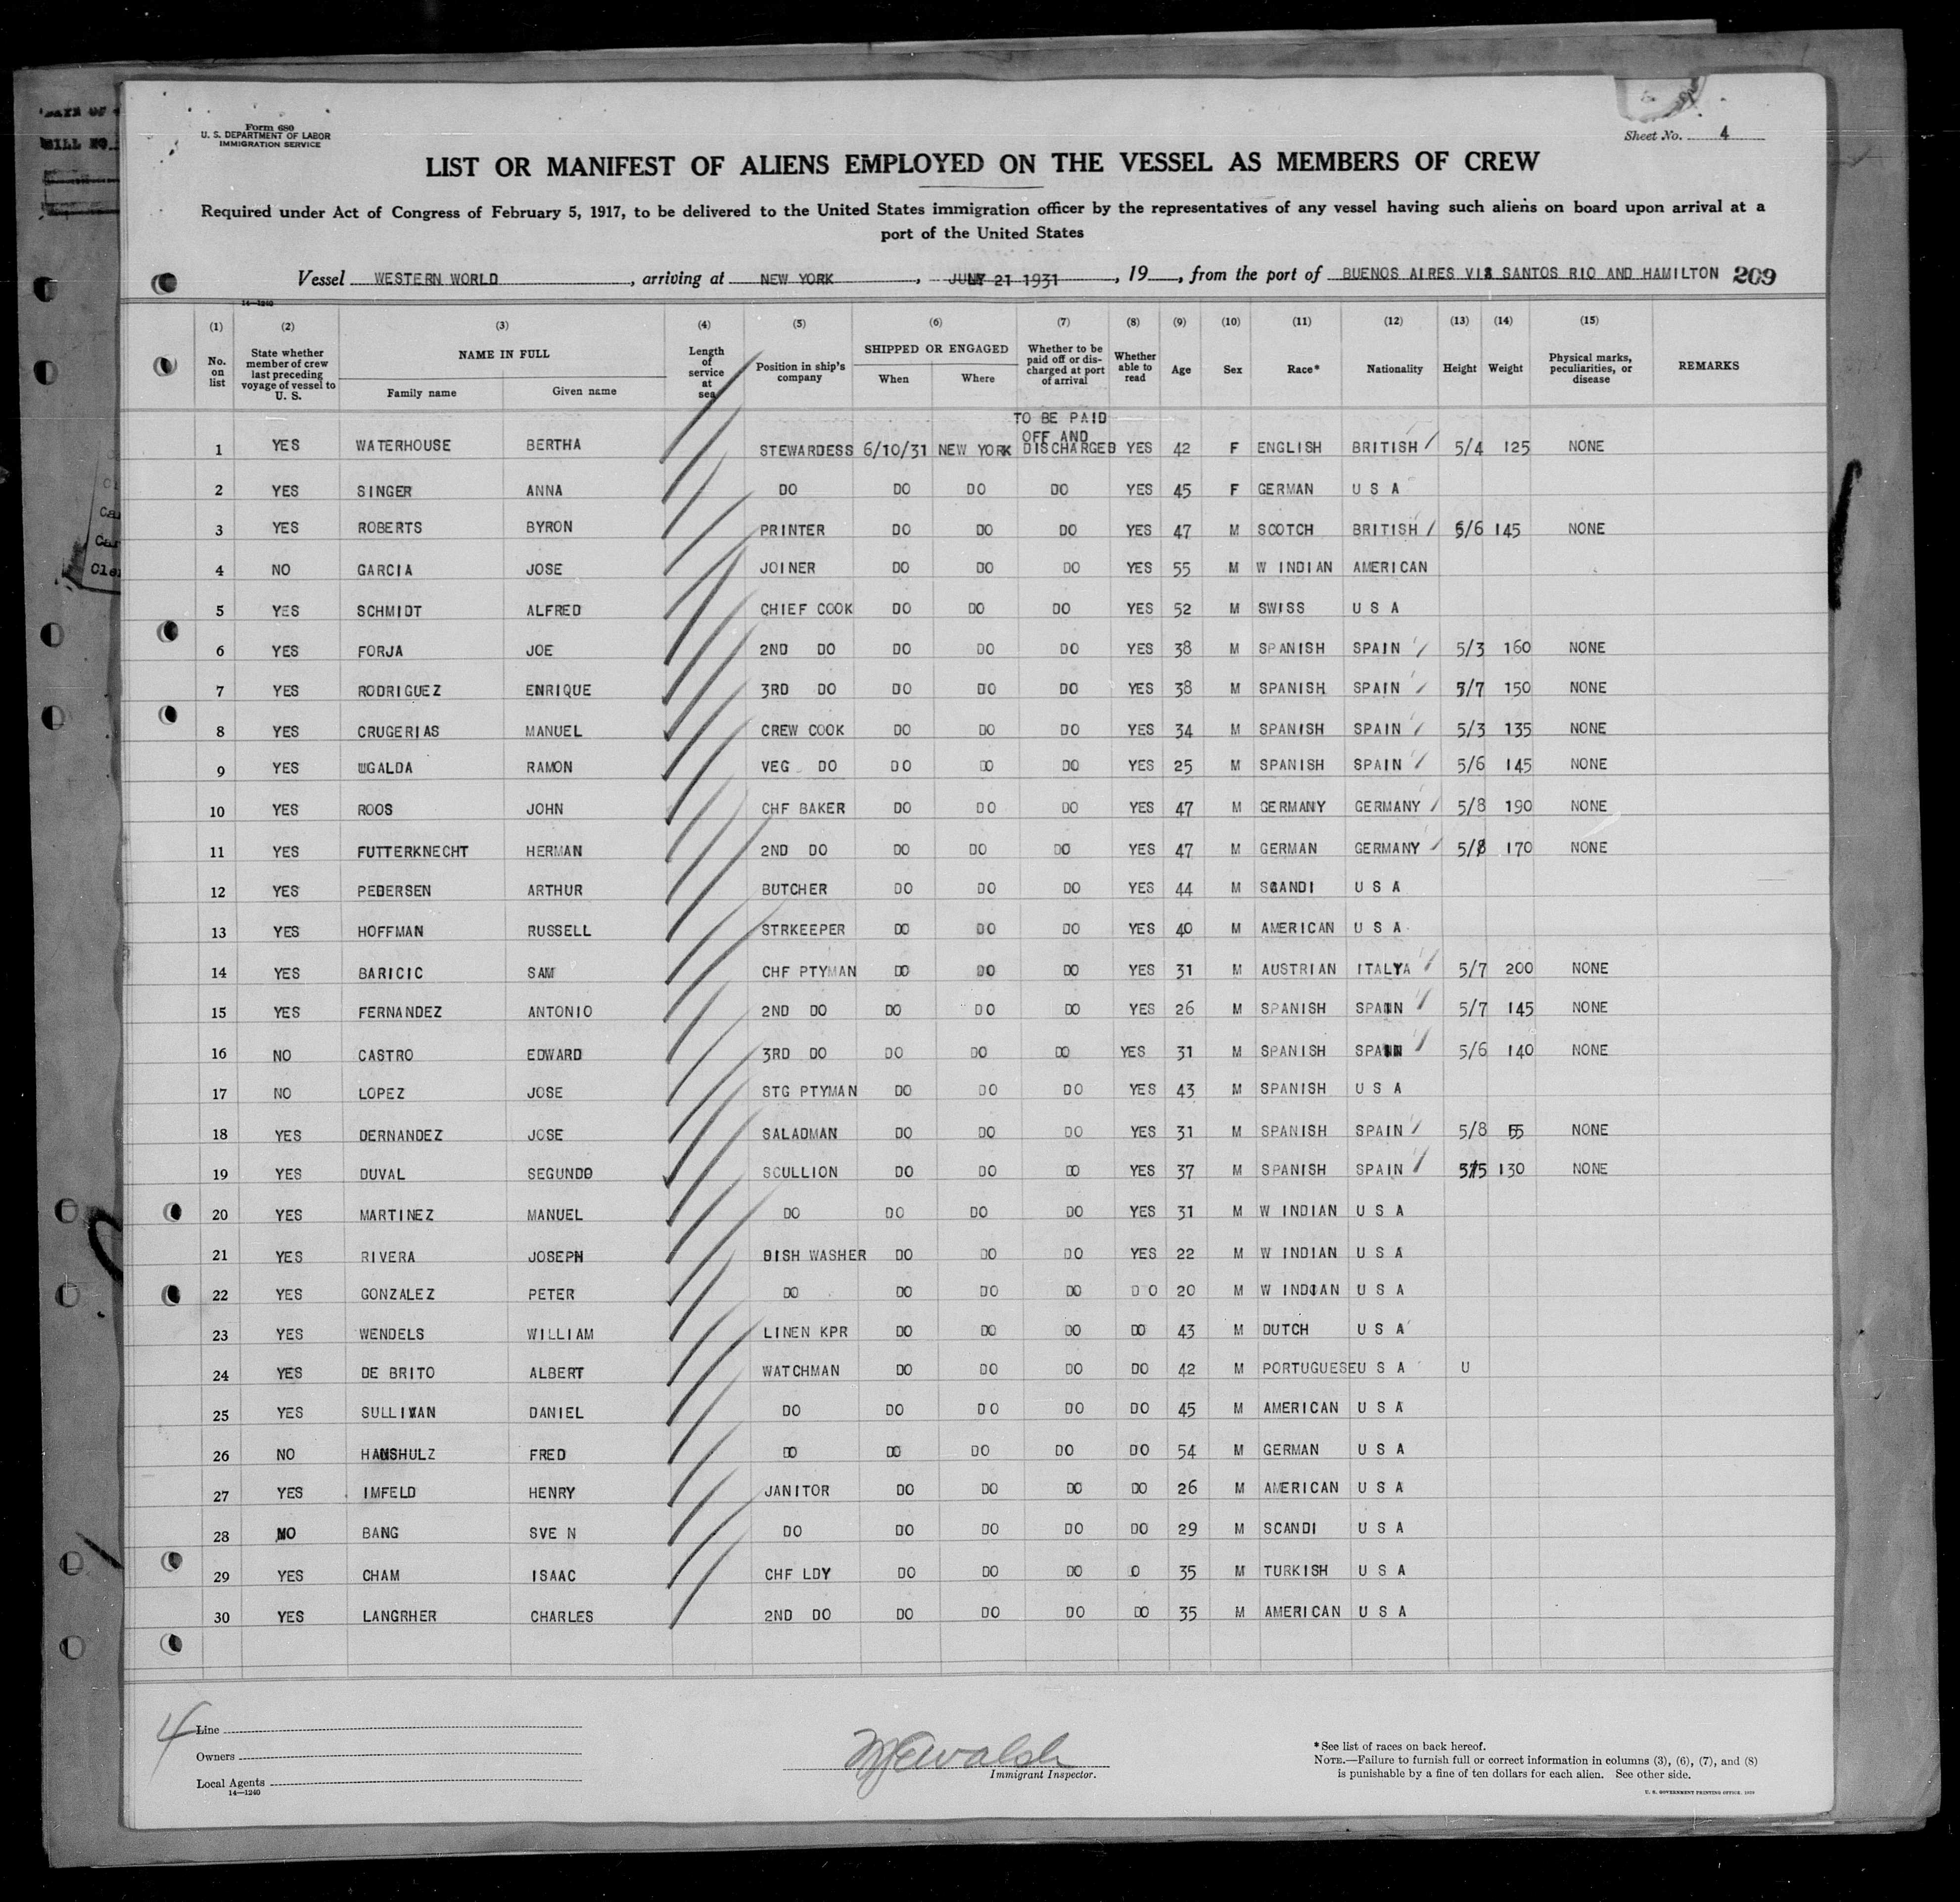 Form 680
U. S. DEPARTMENT OF LABOR
IMMIGRATION SERVICE
Sheet No. 4
LIST OR MANIFEST OF ALIENS EMPLOYED ON THE VESSEL AS MEMBERS OF CREW
Required under Act of Congress of February 5, 1917, to be delivered to the United States immigration officer by the representatives of any vessel having such aliens on board upon arrival at a
port of the United States
Vessel WESTERN WORLD, arriving at NEW YORK, JULY 21 1931, 19, from the port of BUENOS AIRES VIA SANTOS RIO AND HAMILTON 209
14—1240
(1) (2) (3) (4) (5) (6) (7) (8) (9) (10) (11) (12) (13) (14) (15)
No. on list State whether member of crew last preceding voyage of vessel to U. S. NAME IN FULL Family name Given name Length of service at sea Position in ship's company SHIPPED OR ENGAGED When Where Whether to be paid off or discharged at port of arrival Whether able to read Age Sex Race* Nationality Height Weight Physical marks, peculiarities, or disease REMARKS
1 YES WATERHOUSE BERTHA STEWARDESS 6/10/31 NEW YORK TO BE PAID OFF AND DISCHARGED YES 42 F ENGLISH BRITISH 5/4 125 NONE
2 YES SINGER ANNA DO DO DO DO YES 45 F GERMAN U S A
3 YES ROBERTS BYRON PRINTER DO DO DO YES 47 M SCOTCH BRITISH 5/6 145 NONE
4 NO GARCIA JOSE JOINER DO DO DO YES 55 M W INDIAN AMERICAN
5 YES SCHMIDT ALFRED CHIEF COOK DO DO DO YES 52 M SWISS U S A
6 YES FORJA JOE 2ND DO DO DO DO YES 38 M SPANISH SPAIN 5/3 160 NONE
7 YES RODRIGUEZ ENRIQUE 3RD DO DO DO DO YES 38 M SPANISH SPAIN 5/7 150 NONE
8 YES CRUGERIAS MANUEL CREW COOK DO DO DO YES 34 M SPANISH SPAIN 5/3 135 NONE
9 YES UGALDA RAMON VEG DO DO DO DO YES 25 M SPANISH SPAIN 5/6 145 NONE
10 YES ROOS JOHN CHF BAKER DO DO DO YES 47 M GERMANY GERMANY 5/8 190 NONE
11 YES FUTTERKNECHT HERMAN 2ND DO DO DO DO YES 47 M GERMAN GERMANY 5/8 170 NONE
12 YES PEDERSEN ARTHUR BUTCHER DO DO DO YES 44 M SCANDI U S A
13 YES HOFFMAN RUSSELL STRKEEPER DO DO DO YES 40 M AMERICAN U S A
14 YES BARICIC SAM CHF PTYMAN DO DO DO YES 31 M AUSTRIAN ITALYA 5/7 200 NONE
15 YES FERNANDEZ ANTONIO 2ND DO DO DO DO YES 26 M SPANISH SPAIN 5/7 145 NONE
16 NO CASTRO EDWARD 3RD DO DO DO DO YES 31 M SPANISH SPAIN 5/6 140 NONE
17 NO LOPEZ JOSE STG PTYMAN DO DO DO YES 43 M SPANISH U S A
18 YES DERNANDEZ JOSE SALADMAN DO DO DO YES 31 M SPANISH SPAIN 5/8 NONE
19 YES DUVAL SEGUNDO SCULLION DO DO DO YES 37 M SPANISH SPAIN 5/5 130 NONE
20 YES MARTINEZ MANUEL DO DO DO DO YES 31 M W INDIAN U S A
21 YES RIVERA JOSEPH DISH WASHER DO DO DO YES 22 M W INDIAN U S A
22 YES GONZALEZ PETER DO DO DO DO D O 20 M W INDIAN U S A
23 YES WENDELS WILLIAM LINEN KPR DO DO DO DO 43 M DUTCH U S A
24 YES DE BRITO ALBERT WATCHMAN DO DO DO DO 42 M PORTUGUESE U S A U
25 YES SULLIVAN DANIEL DO DO DO DO DO 45 M AMERICAN U S A
26 NO HANSHULZ FRED DO DO DO DO DO 54 M GERMAN U S A
27 YES IMFELD HENRY JANITOR DO DO DO DO 26 M AMERICAN U S A
28 NO BANG SVE N DO DO DO DO DO 29 M SCANDI U S A
29 YES CHAM ISAAC CHF LDY DO DO DO O 35 M TURKISH U S A
30 YES LANGRHER CHARLES 2ND DO DO DO DO DO 35 M AMERICAN U S A
4
Line
Owners
Local Agents
14—1240
Immigrant Inspector.
*See list of races on back hereof.
NOTE.—Failure to furnish full or correct information in columns (3), (6), (7), and (8)
is punishable by a fine of ten dollars for each alien. See other side.
U. S. GOVERNMENT PRINTING OFFICE: 1929